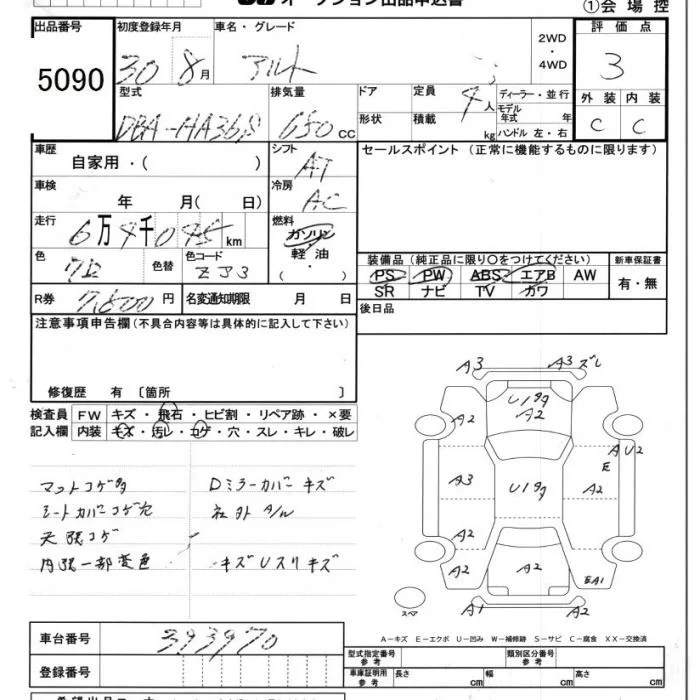 オークション出品申込書
①会場控
出品番号
5090
初度登録年月
30 8月
車名・グレード
アルト
2WD
・
4WD
評価点
3
型式
DBA-HA36S
排気量
650 CC
ドア
形状
定員
4人
積載
kg
ディーラー・並行
モデル年式 年
ハンドル 左・右
外装 内装
C C
車歴
自家用・( )
シフト
AT
セールスポイント (正常に機能するものに限ります)
車検
年 月( 日)
冷房
AC
走行
6万4千095km
燃料
ガソリン
軽油・
( )
色
色替
色コード
ZJ3
装備品 (純正品に限り○をつけてください)
PS PW ABS エアB AW
SR ナビ TV カワ
新車保証書
有・無
R券
円
名変通知期限 月 日
後日品
注意事項申告欄 (不具合内容等は具体的に記入して下さい)
修復歴 有 〔箇所 〕
検査員記入欄
FW キズ・飛石・ヒビ割・リペア跡・×要
内装 キズ・汚レ・コゲ・穴・スレ・キレ・破レ
マットコゲ多
シートカバーコゲ穴
天張コゲ
内張一部変色
Dミラーカバーキズ
社外A/W
キズUスリキズ
A3 A3 ズレ
U1多々
A2
A2
AU2
E
A3
U1多々
A2
A2
A2
A2
EA1
A1
A2
スペア
A-キズ E-エクボ U-凹み W-補修跡 S-サビ C-腐食 XX-交換済
車台番号
393970
登録番号
型式指定番号
参考
類別区分番号
参考
車庫証明用
参考
長さ cm
幅 cm
高さ cm